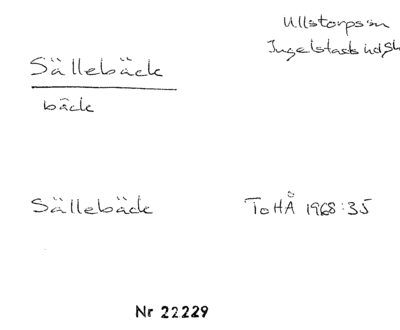 Ullstorps sn
Ingelstads hd Sk
Sällebäck
bäck
Sällebäck ToHÅ 1968:35
Nr 22229